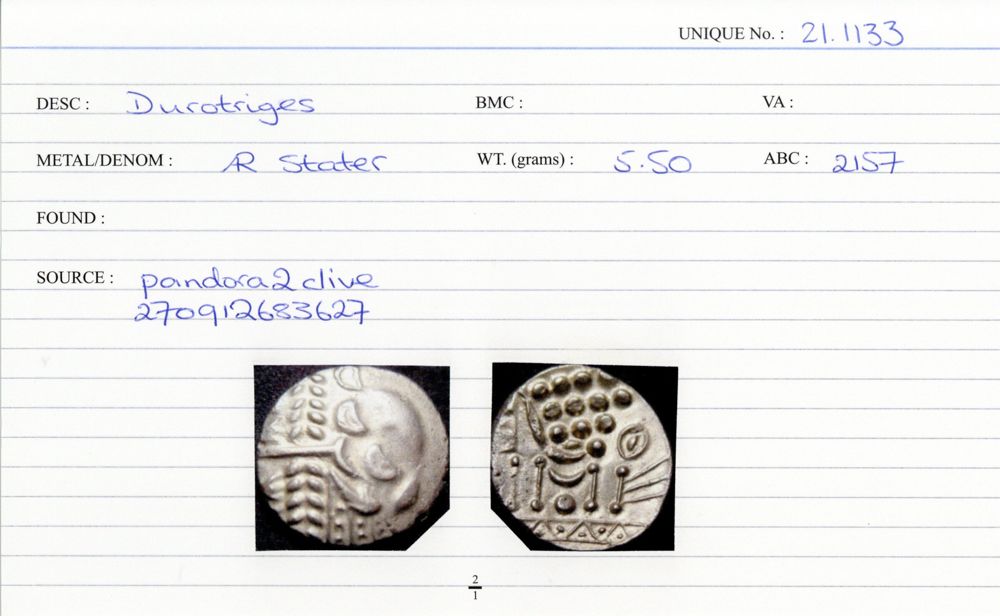 UNIQUE No. : 21.1133
DESC : Durotriges BMC : VA :
METAL/DENOM : AR Stater WT. (grams) : 5.50 ABC : 2157
FOUND :
SOURCE : pandora2clive
270912683627
2
1